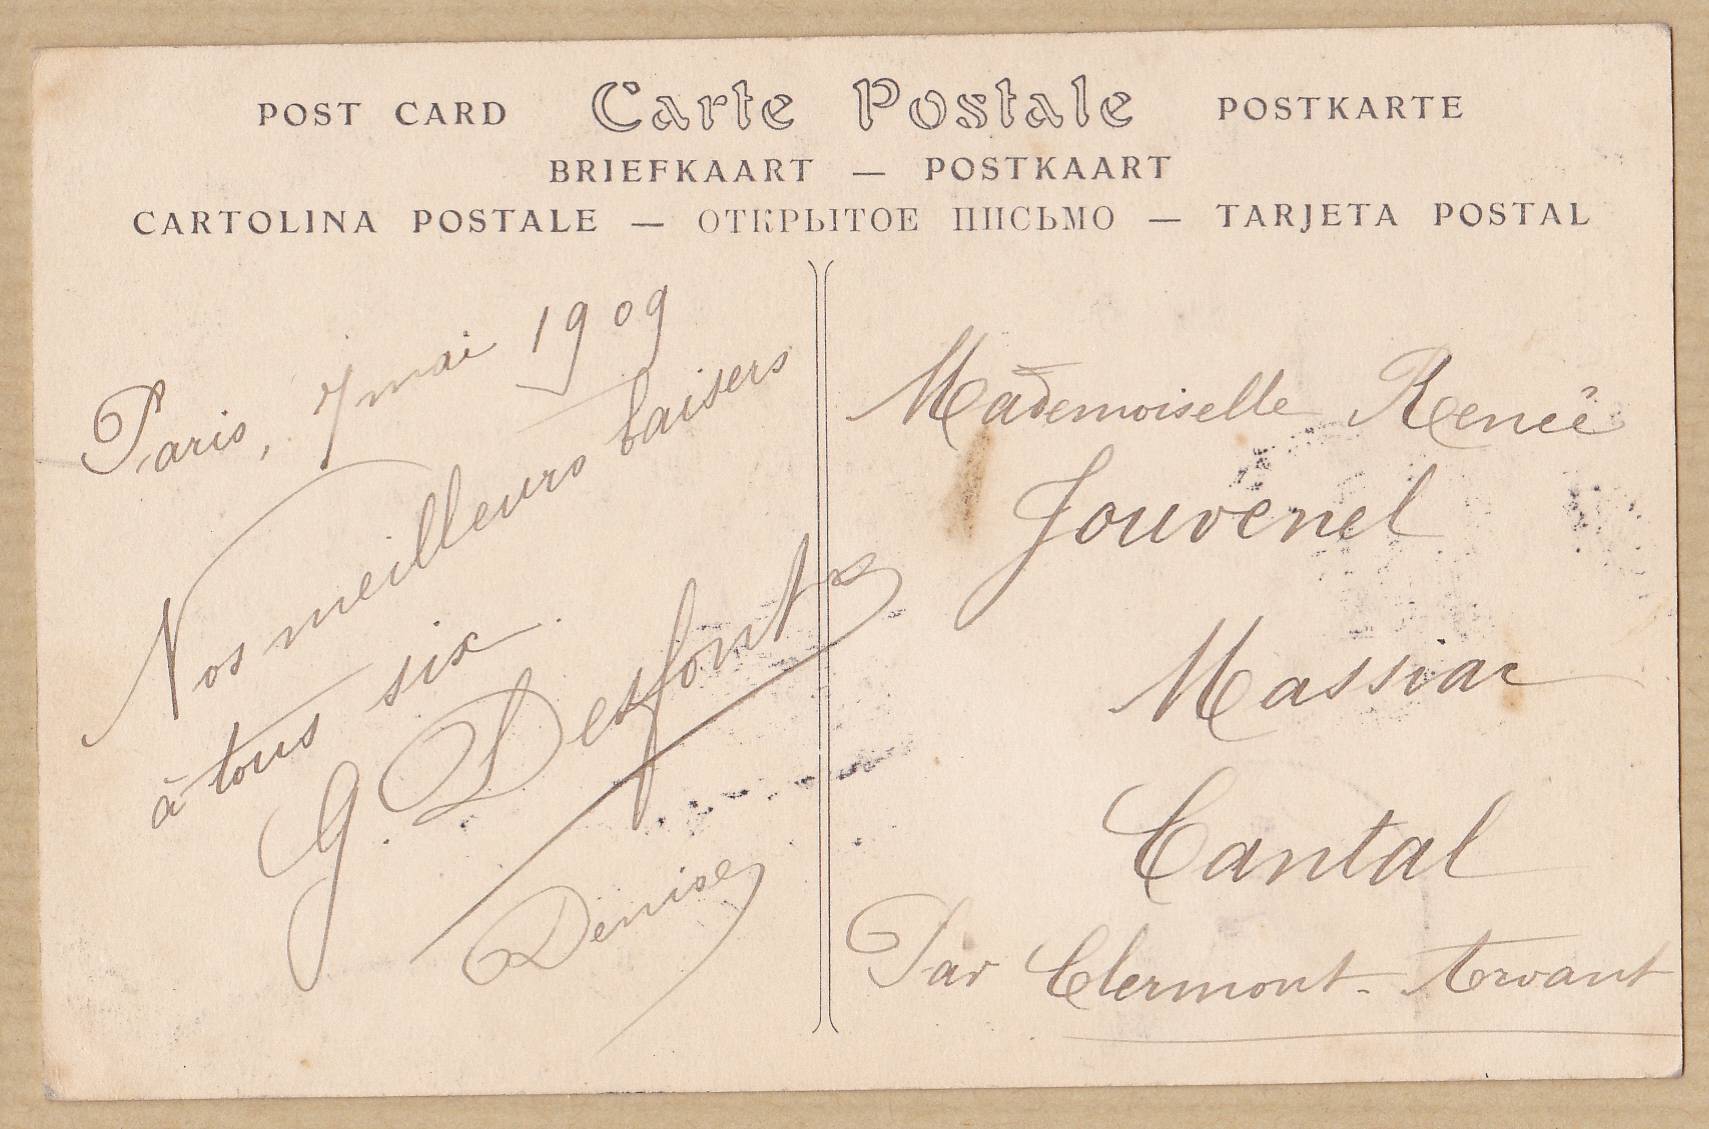 POST CARD Carte Postale POSTKARTE
BRIEFKAART — POSTKAART
CARTOLINA POSTALE — ОТКРЫТОЕ ПИСЬМО — TARJETA POSTAL
Paris, 7 mai 1909
Nos meilleurs baisers
à tous six.
G. Desfont
Denise
Mademoiselle Renée
Jouvenel
Massiac
Cantal
Par Clermont - Arvant